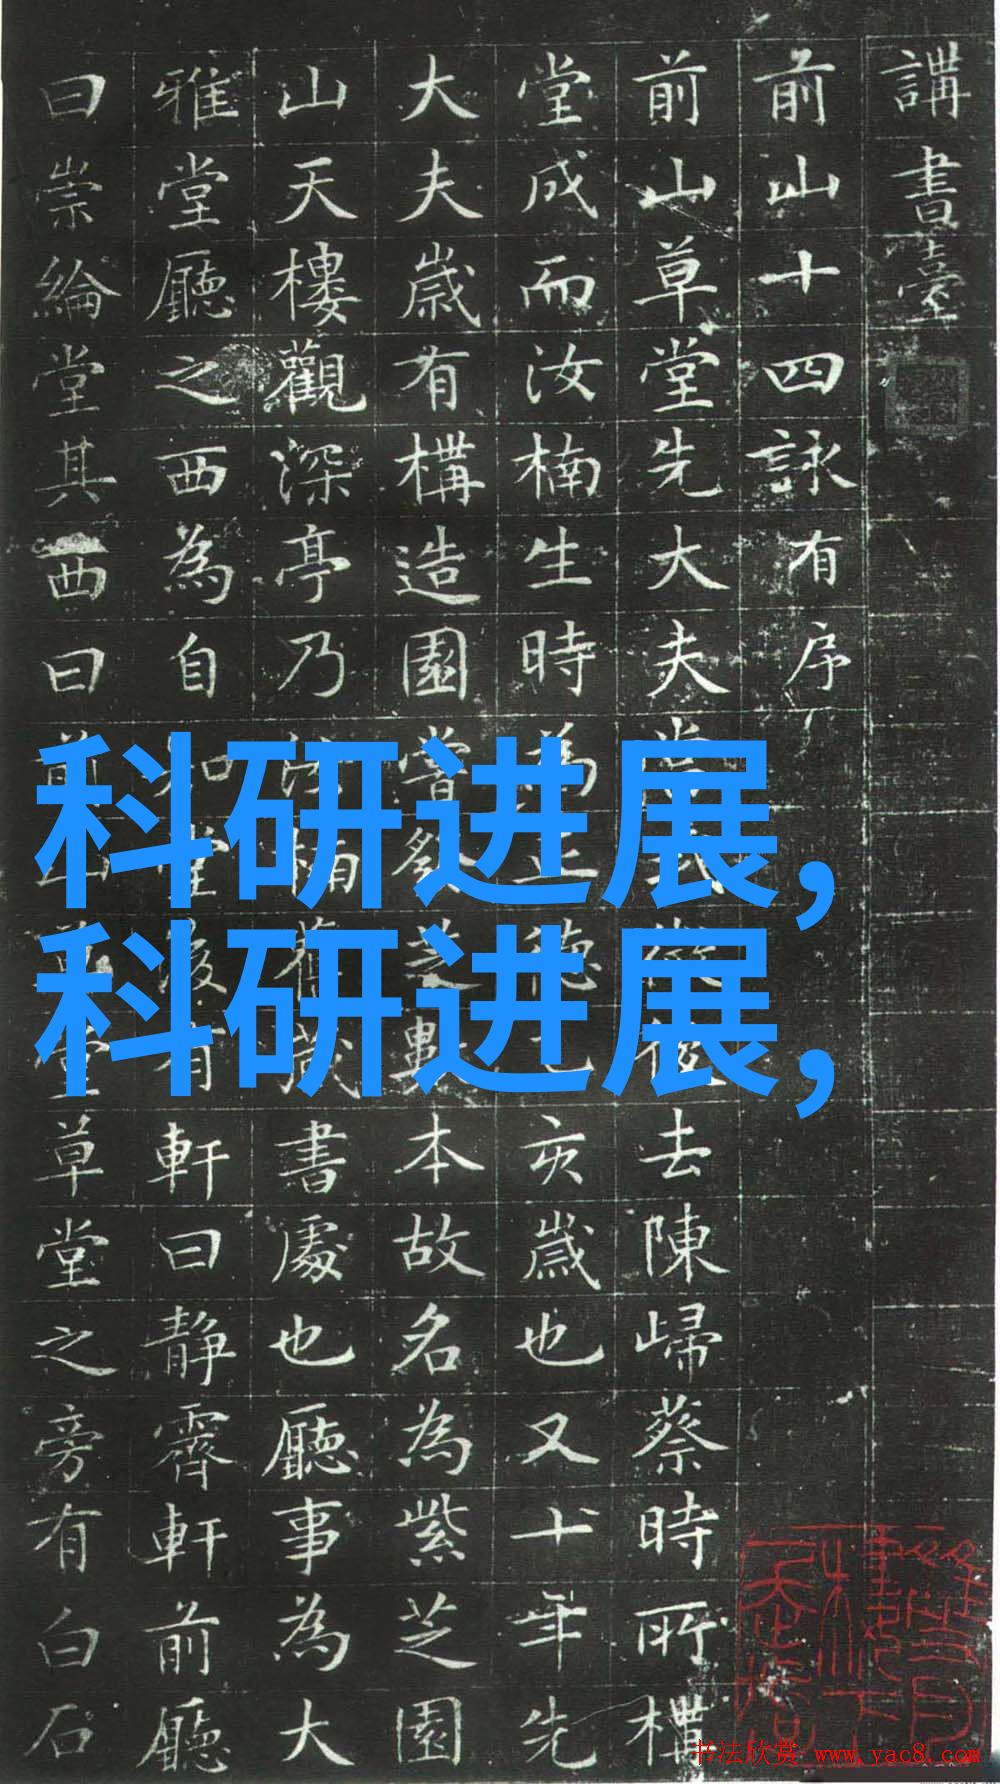 講書臺
前山十四詠有序
前山草堂先大夫去陳歸蔡時所
堂成而汝楠生時為正德乙亥歲也又十年先
大夫歲有構造園嘗發芝數本故名為紫芝園
山天樓觀深亭乃汝楠舊藏書處也廳事為大
雅堂廳之西為自知堂後有軒曰靜霽軒前廳
曰崇綸堂其西曰前山草堂草堂之旁有白石
科研进展,
科研进展,
书法欣赏 www.yac8.com